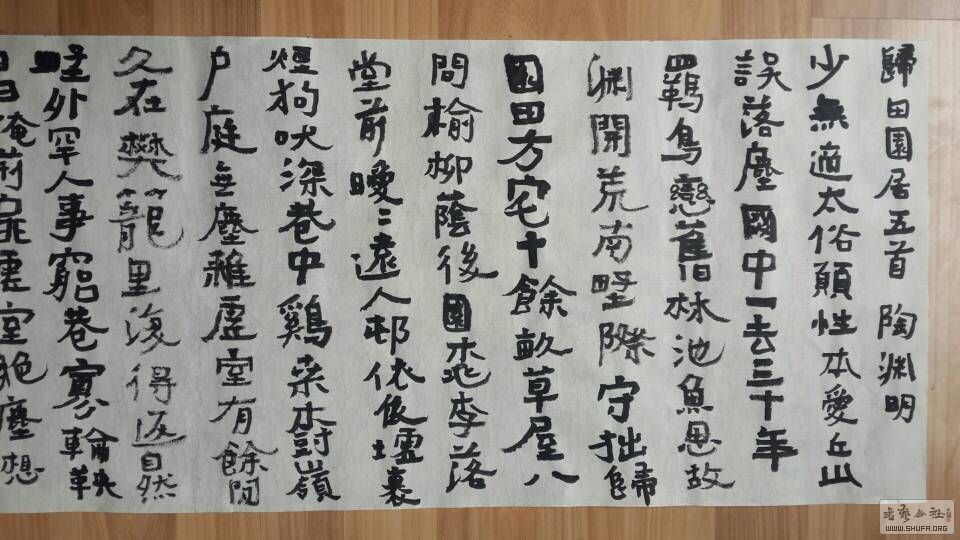 歸田園居五首 陶渊明
少無適太俗願性本愛丘山
誤落塵网中一去三十年
羈鳥戀舊林池魚思故
渊開荒南野際守拙歸
園田方宅十餘畝草屋八
間榆柳蔭後園桃李落
堂前曖二遠人邨依依墟裏
煙狗吠深巷中鷄桒樹嶺
户庭無塵雜虛室有餘閒
久在樊籠里復得返自然
野外罕人事窮巷寡輪鞅
日掩荊扉虛室絶塵想
书艺公社
WWW.SHUFA.ORG